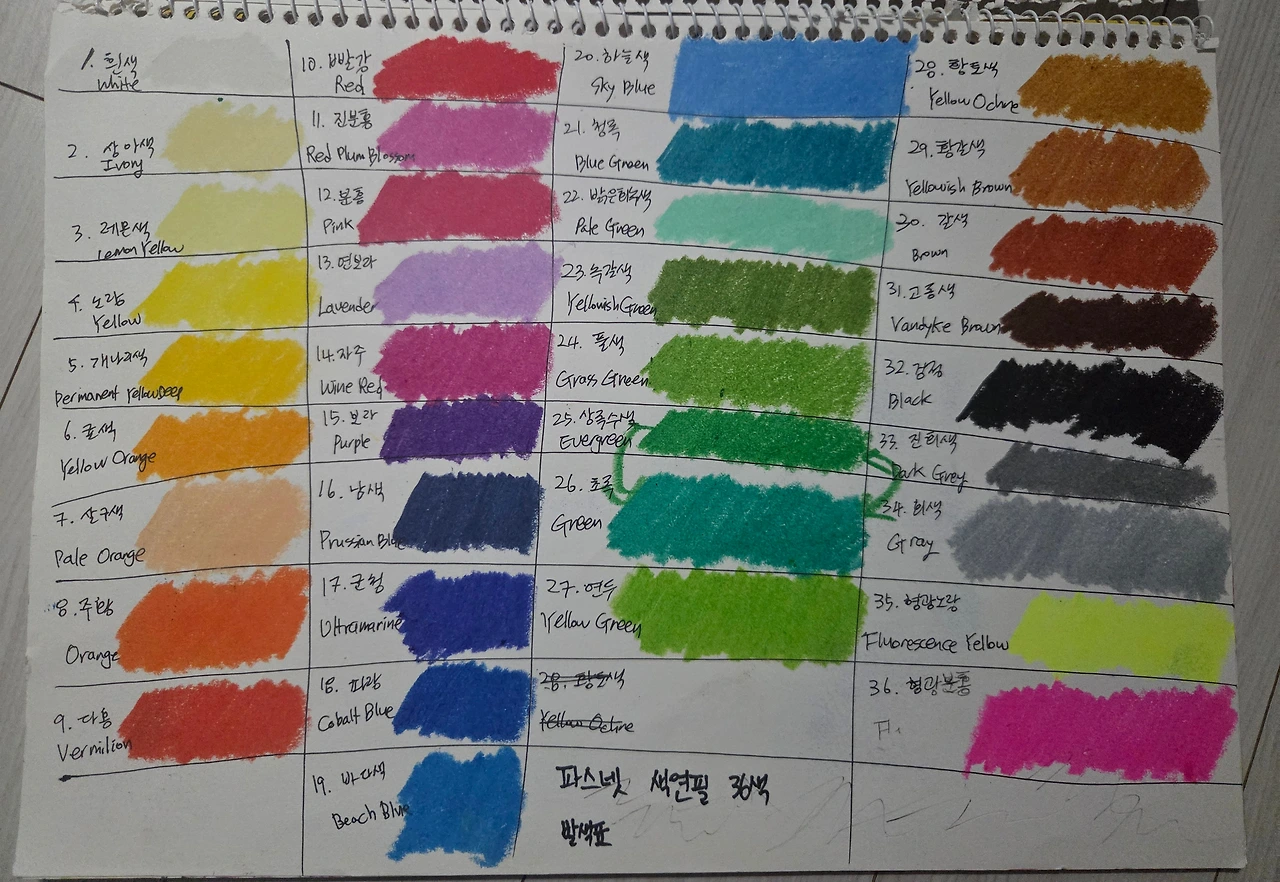 1. 흰색
White
2. 상아색
Ivory
3. 레몬색
Lemon Yellow
4. 노랑
Yellow
5. 개나리색
Permanent Yellow Deep
6. 귤색
Yellow Orange
7. 살구색
Pale Orange
8. 주황
Orange
9. 다홍
Vermilion
10. 빨강
Red
11. 진분홍
Red Plum Blossom
12. 분홍
Pink
13. 연보라
Lavender
14. 자주
Wine Red
15. 보라
Purple
16. 남색
Prussian Blue
17. 군청
Ultramarine
18. 파랑
Cobalt Blue
19. 바다색
Beach Blue
20. 하늘색
Sky Blue
21. 청록
Blue Green
22.
Pale Green
23. 녹갈색
Yellowish Green
24. 풀색
Grass Green
25. 상록수색
Evergreen
26. 초록
Green
27. 연두
Yellow Green
28. 황토색
Yellow Ochre
파스넷 색연필 36색
발색표
28. 황토색
Yellow Ochre
29. 황갈색
Yellowish Brown
30. 갈색
Brown
31. 고동색
Vandyke Brown
32. 검정
Black
33. 진회색
Dark Grey
34. 회색
Gray
35. 형광노랑
Fluorescence Yellow
36. 형광분홍
Fl